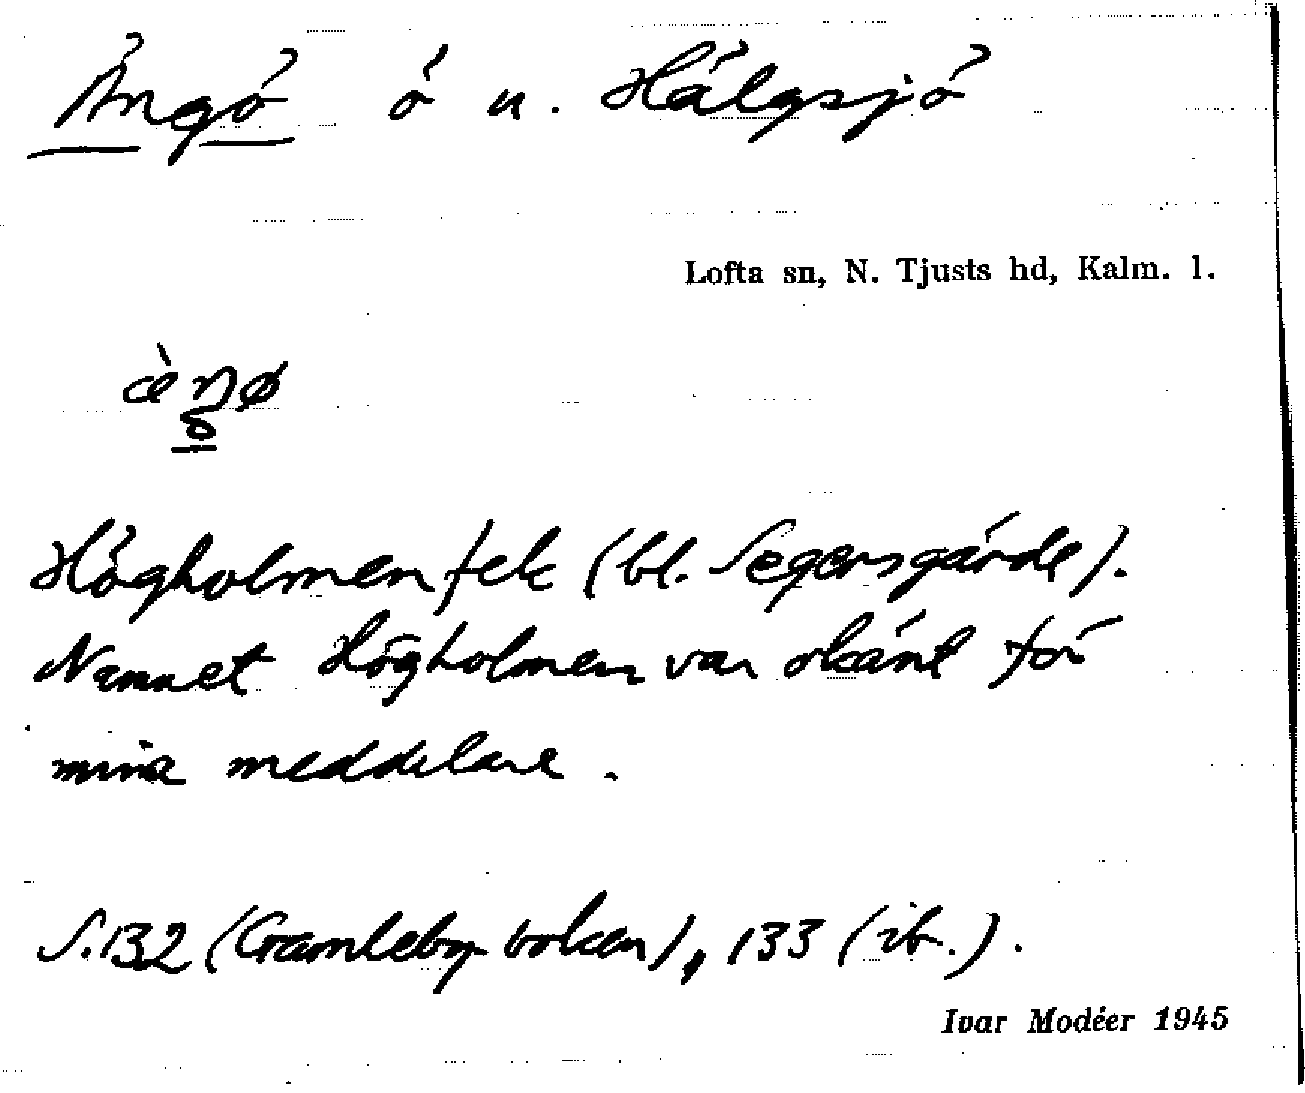 Ängö ö u. Hälgsjö
Lofta sn, N. Tjusts hd, Kalm. l.
Högholmen fek (bl. Segersgärde).
Namnet Högholmen var okänt för
mina meddelare.
S. 132 (Gamlebyboken), 133 (ib.).
Ivar Modéer 1945